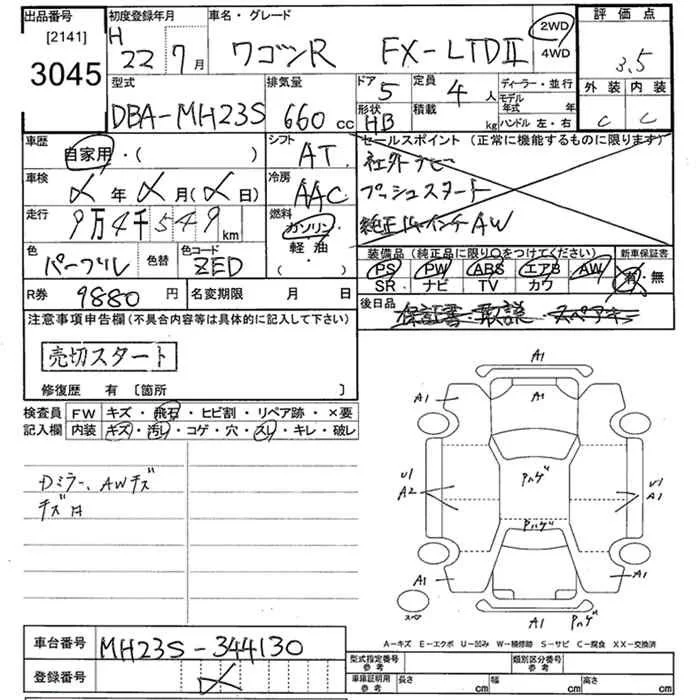 出品番号 初度登録年月 車名・グレード 評価点
[2141] H 2WD
3045 22 7月 ワゴンR FX-LTDⅡ 4WD 3.5
型式 排気量 ドア 定員 ディーラー・並行 外装 内装
DBA-MH23S 660cc 5 4人 モデル年式 年
形状 HB 積載 kg ハンドル 左・右 C C
車歴 自家用・( ) シフト AT セールスポイント (正常に機能するものに限ります)
社外ナビ
車検 〆年〆月(〆日) 冷房 AAC プッシュスタート
走行 9万4千549km 燃料 ガソリン 軽油 ・( ) 純正14インチAW
色 パープル 色替 色コード ZED 装備品 (純正品に限り○をつけてください) 新車保証書
PS PW ABS エアB AW 有・無
SR ナビ TV カワ
R券 9880円 名変期限 月 日 後日品 保証書・取説 スペアキー
注意事項申告欄(不具合内容等は具体的に記入して下さい)
売切スタート
修復歴 有 〔箇所 〕
検査員 FW キズ・飛石・ヒビ割・リペア跡・×要
記入欄 内装 キズ・汚れ・コゲ・穴・スレ・キレ・破レ
Dミラー、AWキズ
A1
A1 A1 A1
Pハゲ
U1 A2 U1 A1
Pハゲ
A1 A1
スペア A1 Pハゲ
A=キズ E=エクボ U=凹み W=補修跡 S=サビ C=腐食 XX=交換済
車台番号 MH23S-344130
登録番号 〆
型式指定番号 参考 類別区分番号 参考
車庫証明用 参考 長さ cm 幅 cm 高さ cm